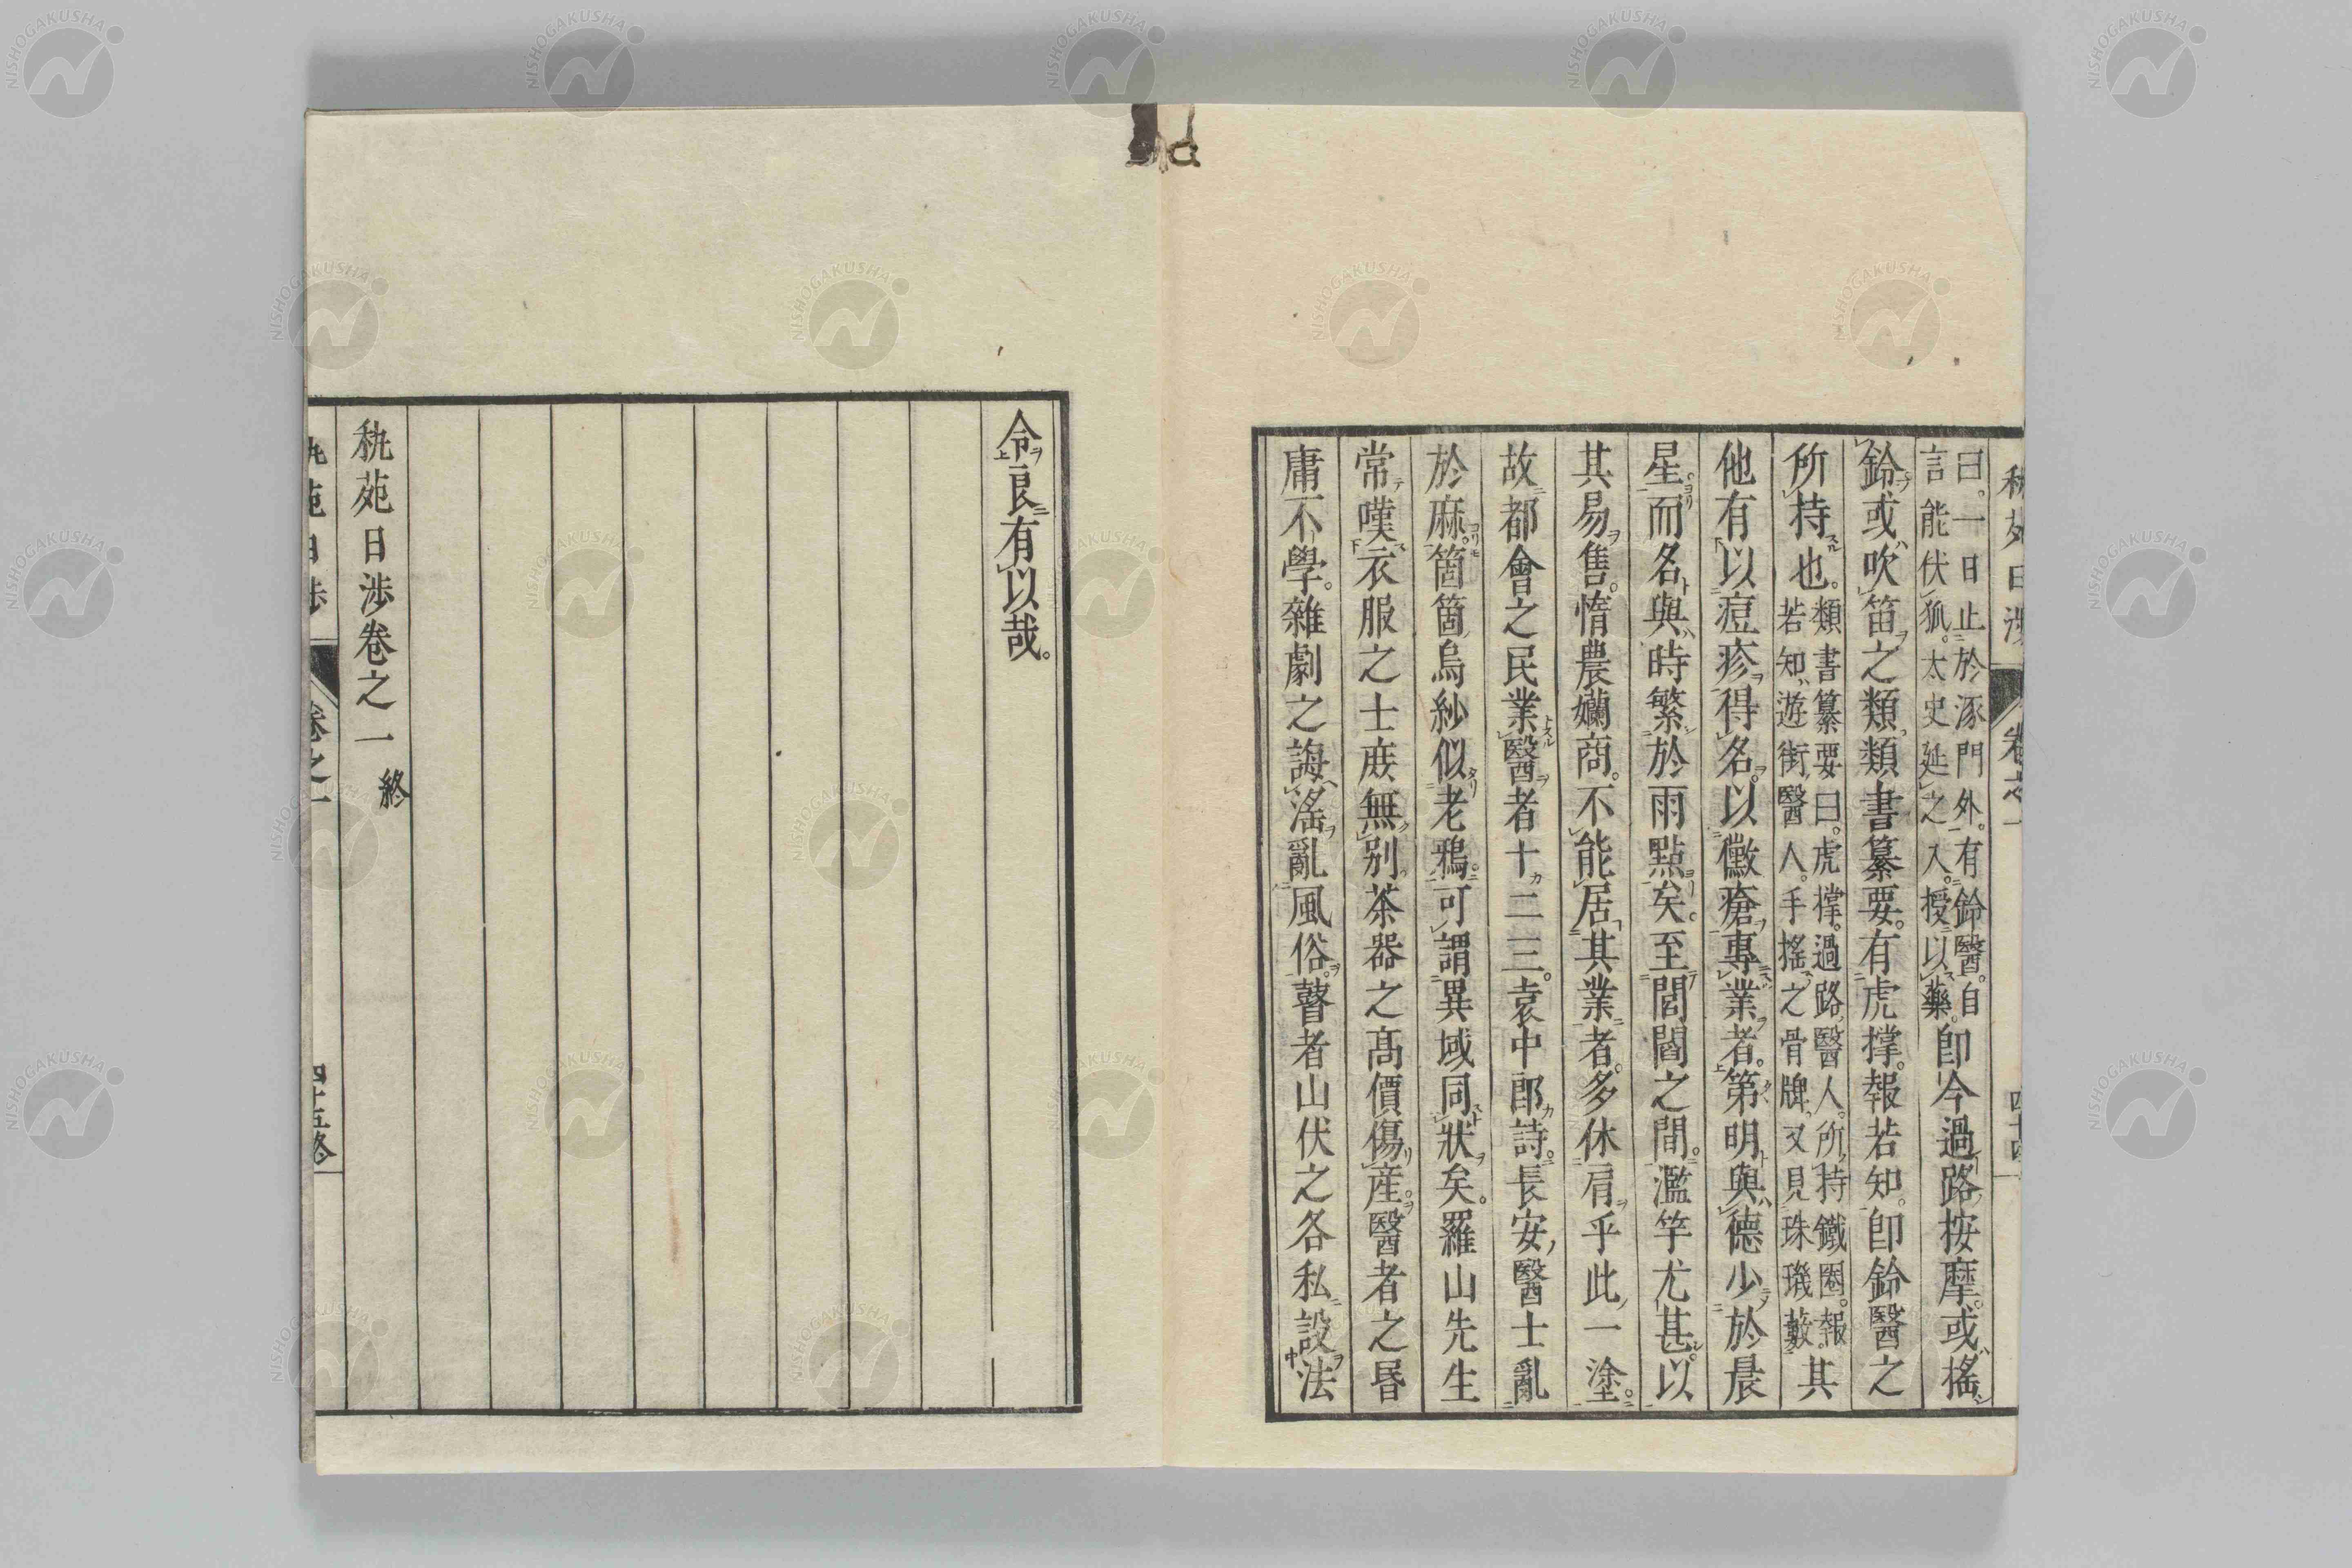 秇苑日渉 卷之一 四十四
曰。一日止於涿門外。有鈴醫。自
言能伏狐。太史延之入。授以藥。
卽今過路按摩。或搖
鈴或吹笛之類。類書纂要。有虎撑。報若知。卽鈴醫之
所持也。
類書纂要曰。虎撑。過路醫人。所持鐵圈。報
若知、遊街醫人。手搖之骨牌、又見珠璣藪。
其
他有以痘疹得名。以黴瘡專業者。第明與德少於晨
星。而名與時繁於雨點矣。至閭閻之間。濫竽尤甚。以
其易售。惰農孏商。不能居其業者。多休肩乎此一塗。
故都會之民業醫者十二三。袁中郎詩。長安醫士亂
於麻。箇箇烏紗似老鴉。可謂異域同狀矣。羅山先生
常嘆衣服之士庻無別茶器之髙價傷產。醫者之昬
庸不學。雜劇之誨滛亂風俗。瞽者山伏之各私設法
令良有以哉。
秇苑日渉卷之一 終
秇苑日渉 卷之一 四十五終
NISHOGAKUSHA